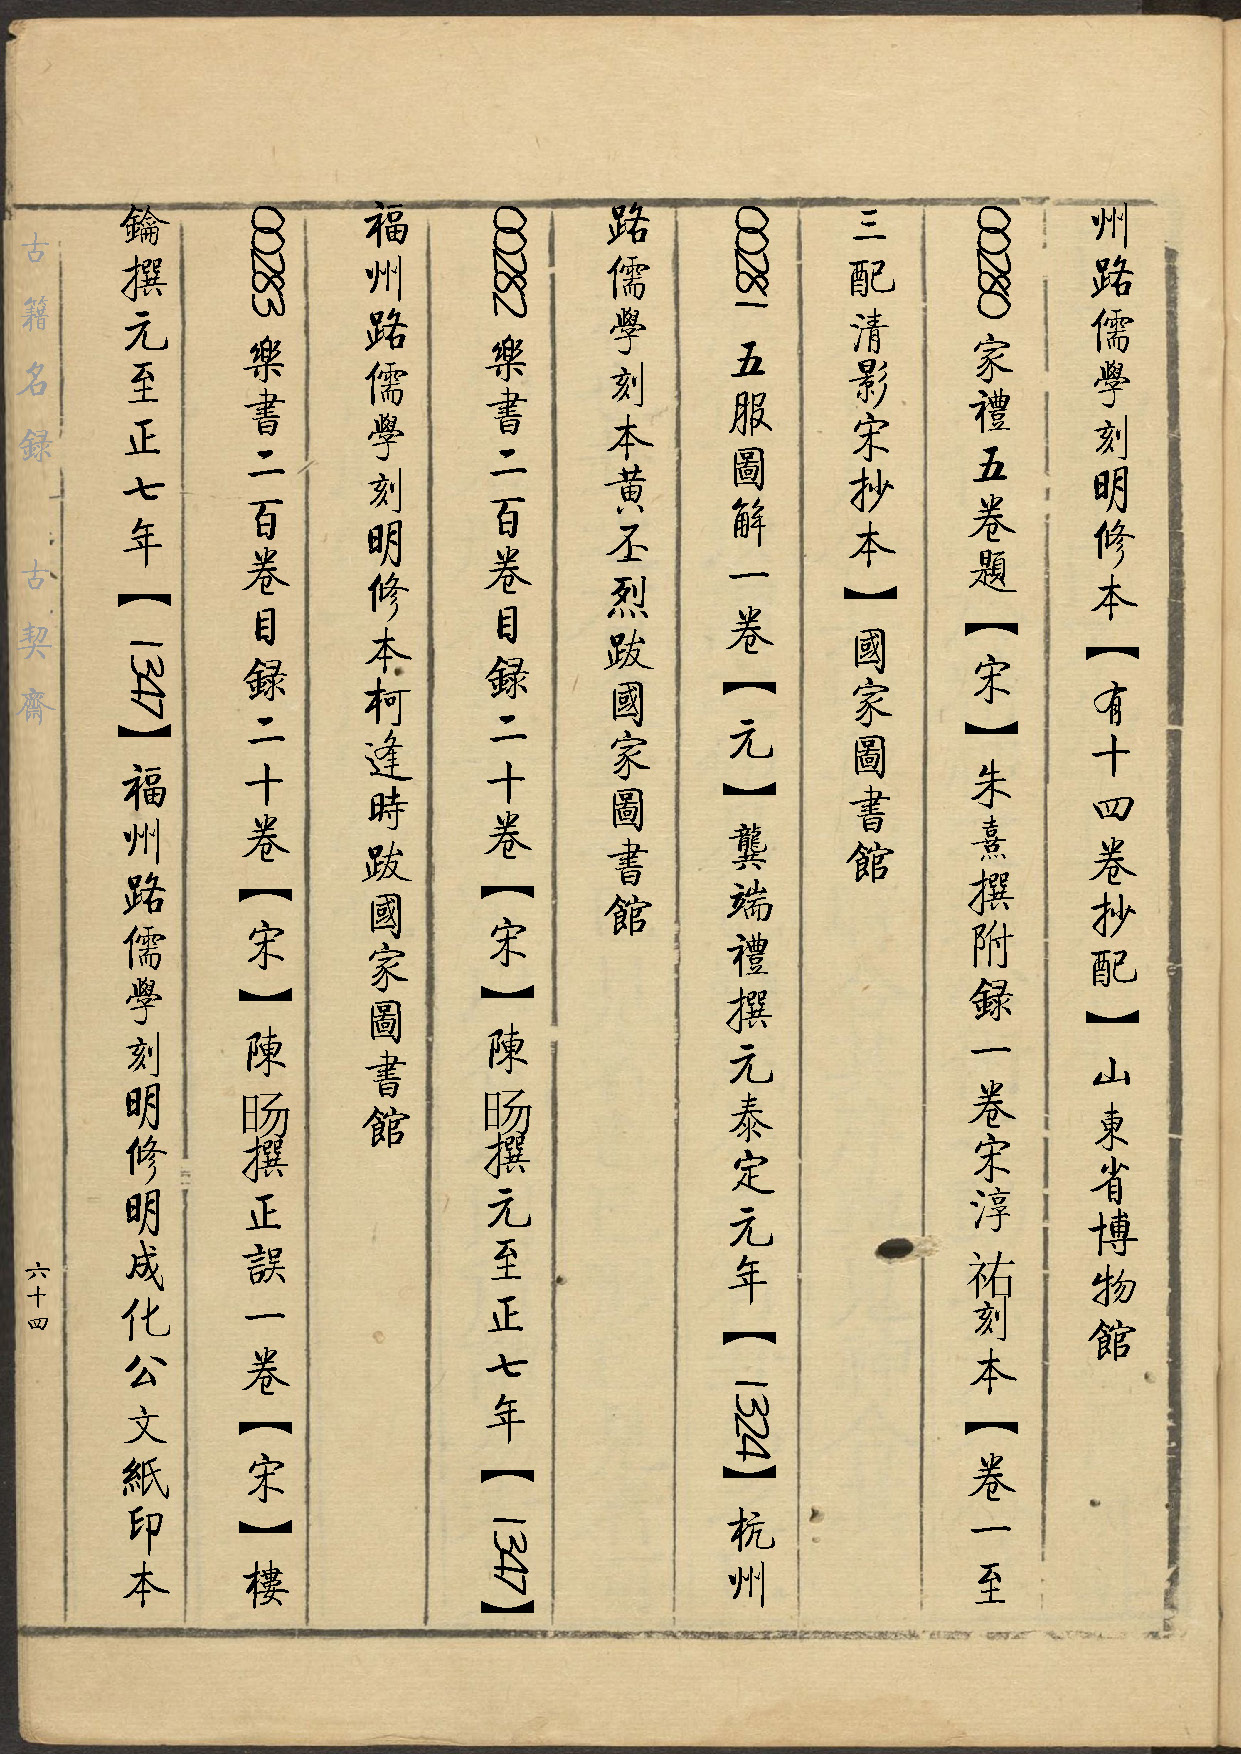 州路儒學刻明修本【有十四卷抄配】山東省博物館
00280 家禮五卷題【宋】朱熹撰附録一卷宋淳祐刻本【卷一至
三配清影宋抄本】國家圖書館
00281 五服圖解一卷【元】龔端禮撰元泰定元年【1324】杭州
路儒學刻本黄丕烈跋國家圖書館
00282 樂書二百卷目録二十卷【宋】陳旸撰元至正七年【1347】
福州路儒學刻明修本柯逢時跋國家圖書館
00283 樂書二百卷目録二十卷【宋】陳旸撰正誤一卷【宋】樓
鑰撰元至正七年【1347】福州路儒學刻明修明成化公文紙印本
古籍名録 古契齋
六十四